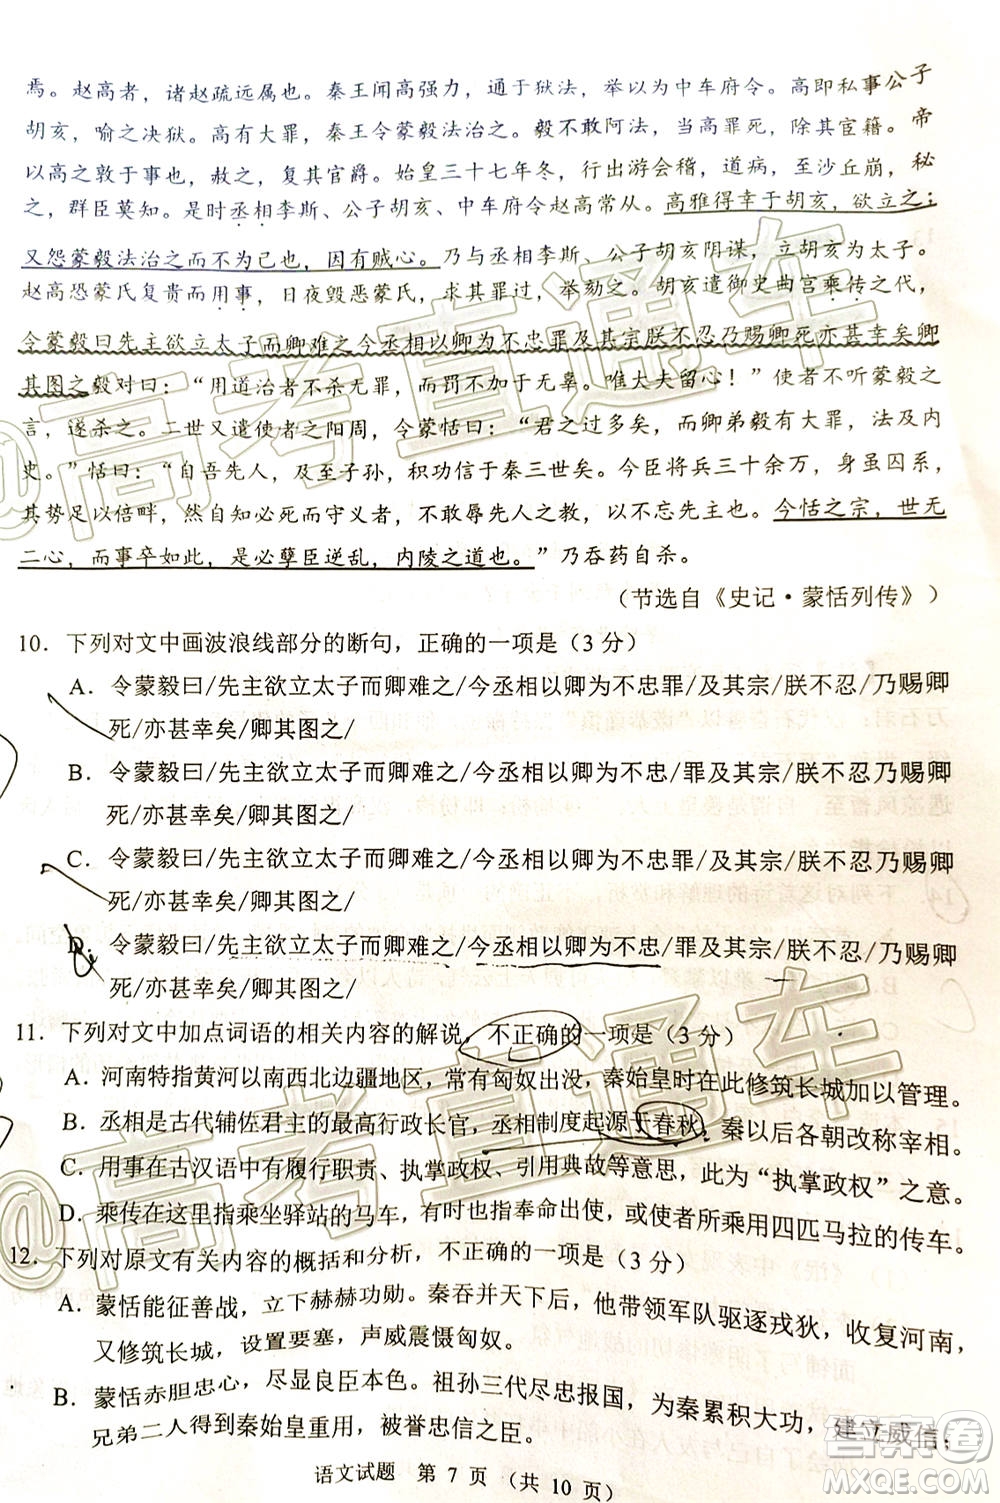 焉。赵高者，诸赵疏远属也。秦王闻高强力，通于狱法，举以为中车府令。高即私事公子
胡亥，喻之决狱。高有大罪，秦王令蒙毅法治之。毅不敢阿法，当高罪死，除其宦籍。帝
以高之敦于事也，赦之，复其官爵。始皇三十七年冬，行出游会稽，道病，至沙丘崩，秘
之，群臣莫知。是时丞相李斯、公子胡亥、中车府令赵高常从。高雅得幸于胡亥，欲立之；
又怨蒙毅法治之而不为己也，因有贼心。乃与丞相李斯、公子胡亥阴谋，立胡亥为太子。
赵高恐蒙氏复贵而用事，日夜毁恶蒙氏，求其罪过，举劾之。胡亥遣御史曲宫乘传之代，
令蒙毅曰先主欲立太子而卿难之今丞相以卿为不忠罪及其宗朕不忍乃赐卿死亦甚幸矣卿
其图之毅对曰：“用道治者不杀无罪，而罚不加于无辜。唯大夫留心！”使者不听蒙毅之
言，遂杀之。二世又遣使者之阳周，令蒙恬曰：“君之过多矣，而卿弟毅有大罪，法及内
史。”恬曰：“自吾先人，及至子孙，积功信于秦三世矣。今臣将兵三十余万，身虽囚系，
其势足以倍畔，然自知必死而守义者，不敢辱先人之教，以不忘先主也。今恬之宗，世无
二心，而事卒如此，是必孽臣逆乱，内陵之道也。”乃吞药自杀。
（节选自《史记·蒙恬列传》）
10．下列对文中画波浪线部分的断句，正确的一项是（3 分）
A．令蒙毅曰/先主欲立太子而卿难之/今丞相以卿为不忠罪/及其宗/朕不忍/乃赐卿
死/亦甚幸矣/卿其图之/
B．令蒙毅曰/先主欲立太子而卿难之/今丞相以卿为不忠/罪及其宗/朕不忍乃赐卿
死/亦甚幸矣/卿其图之/
C．令蒙毅曰/先主欲立太子而卿难之/今丞相以卿为不忠罪/及其宗/朕不忍乃赐卿
死/亦甚幸矣/卿其图之/
D．令蒙毅曰/先主欲立太子而卿难之/今丞相以卿为不忠/罪及其宗/朕不忍/乃赐卿
死/亦甚幸矣/卿其图之/
11．下列对文中加点词语的相关内容的解说，不正确的一项是（3 分）
A．河南特指黄河以南西北边疆地区，秦始皇时在此修筑长城加以管理。
B．丞相是古代辅佐君主的最高行政长官，丞相制度起源于春秋，秦以后各朝改称宰相。
C．用事在古汉语中有履行职责、执掌政权、引用典故等意思，此为“执掌政权”之意。
D．乘传在这里指乘坐驿站的马车，有时也指奉命出使，或使者所乘用四匹马拉的传车。
12．下列对原文有关内容的概括和分析，不正确的一项是（3 分）
A．蒙恬能征善战，立下赫赫功勋。秦吞并天下后，他带领军队驱逐戎狄，收复河南，
又修筑长城，设置要塞，声威震慑匈奴。
B．蒙恬赤胆忠心，尽显良臣本色。祖孙三代尽忠报国，为秦累积大功，建立威信；
兄弟二人得到秦始皇重用，被誉忠信之臣。
语文试题　第 7 页　（共 10 页）
@高考直通车
@高考直通车
MXQE.COM